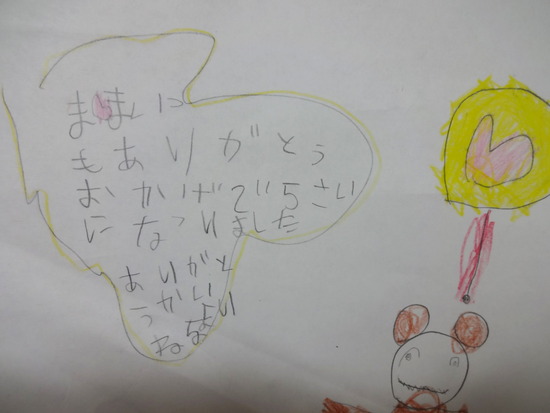 まましに
もありがとう
おかげで5さい
になりました
ありがと
うかい
ね